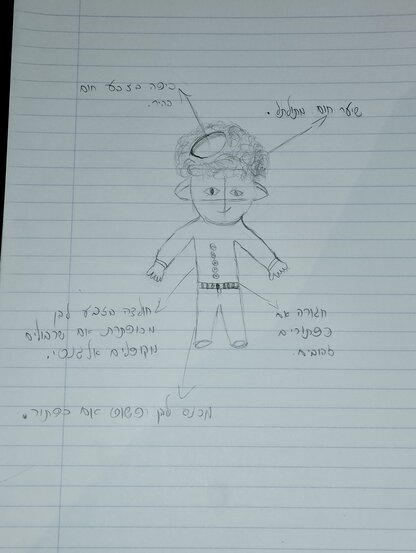 כיפה בצבע חום
כהה.
שיער חום מתולתל.
חולצה בצבע לבן
מכופתרת אם שרבולים
מקופלים אלגנטי.
חגורה אם
כפתורים
זהובים.
מכנס לבן ופשוט אם כפתור.